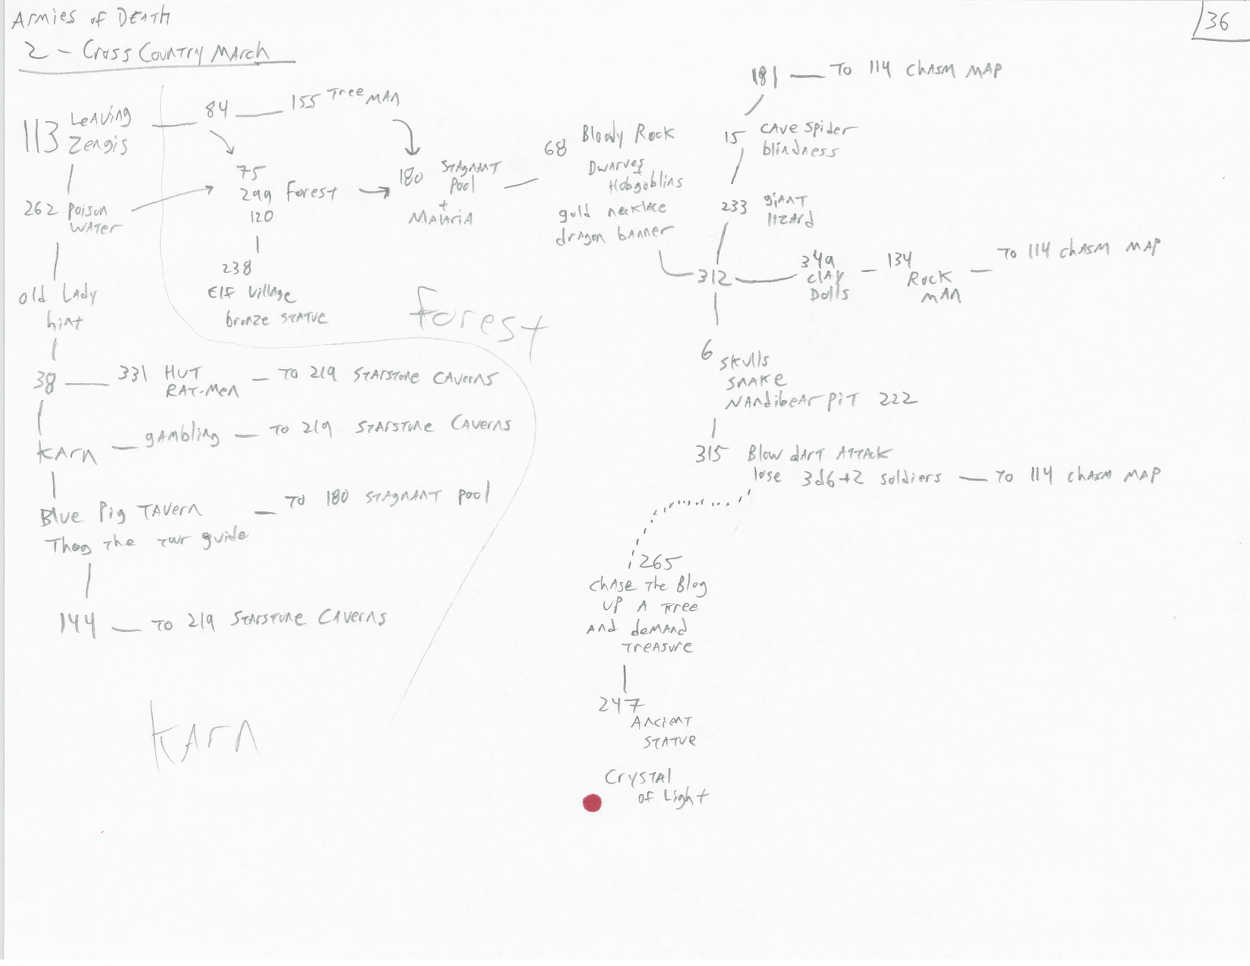 Armies of Death
36
2 - Cross Country March
113 Leaving
Zengis
84
155 Tree Man
262 Poison
Water
75
299 Forest
120
238
Elf Village
bronze statue
180 Stagnant
Pool
+
Malaria
68 Bloody Rock
Dwarves
Hobgoblins
gold necklace
dragon banner
181 — To 114 Chasm Map
15 Cave Spider
blindness
233 giant
lizard
312
349
Clay
Dolls
134
Rock
Man
To 114 Chasm Map
old Lady
hint
Forest
38
331 Hut
Rat-Men
— To 219 Starstone Caverns
Karn — gambling — To 219 Starstone Caverns
Blue Pig Tavern — To 180 Stagnant Pool
Thog the tour guide
144 — To 219 Starstone Caverns
Karn
6 Skulls
Snake
Nandibear Pit 222
315 Blow dart Attack
lose 3d6+2 soldiers — To 114 Chasm Map
265
Chase the Blog
up a tree
and demand
treasure
247
Ancient
Statue
Crystal
of Light